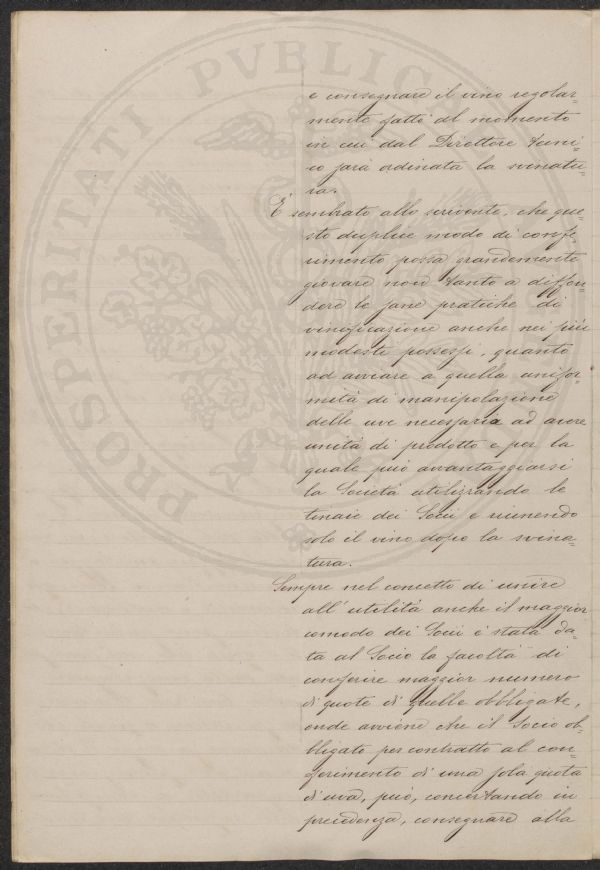 PROSPERITATI PVBLICAE
e consegnare il vino regolar-
mente fatto al momento
in cui dal Direttore tecni-
co sarà ordinata la svinatu-
ra.
È sembrato allo scrivente, che que-
sto duplice modo di confe-
rimento possa grandemente
giovare non tanto a diffon-
dere le sane pratiche di
vinificazione anche nei più
modesti possessi, quanto
ad avviare a quella unifor-
mità di manipolazione
delle uve necessaria ad avere
unità di prodotto e per la
quale può avvantaggiarsi
la Società utilizzando le
tinaie dei Socii e riunendo
solo il vino dopo la svina-
tura.
Sempre nel concetto di unire
all'utilità anche il maggior
comodo dei Socii è stata da-
ta al Socio la facoltà di
conferire maggior numero
di quote di quelle obbligate,
onde avviene che il Socio ob-
bligato per contratto al con-
ferimento di una sola quota
di uva, può, concertando in
precedenza, consegnare alla